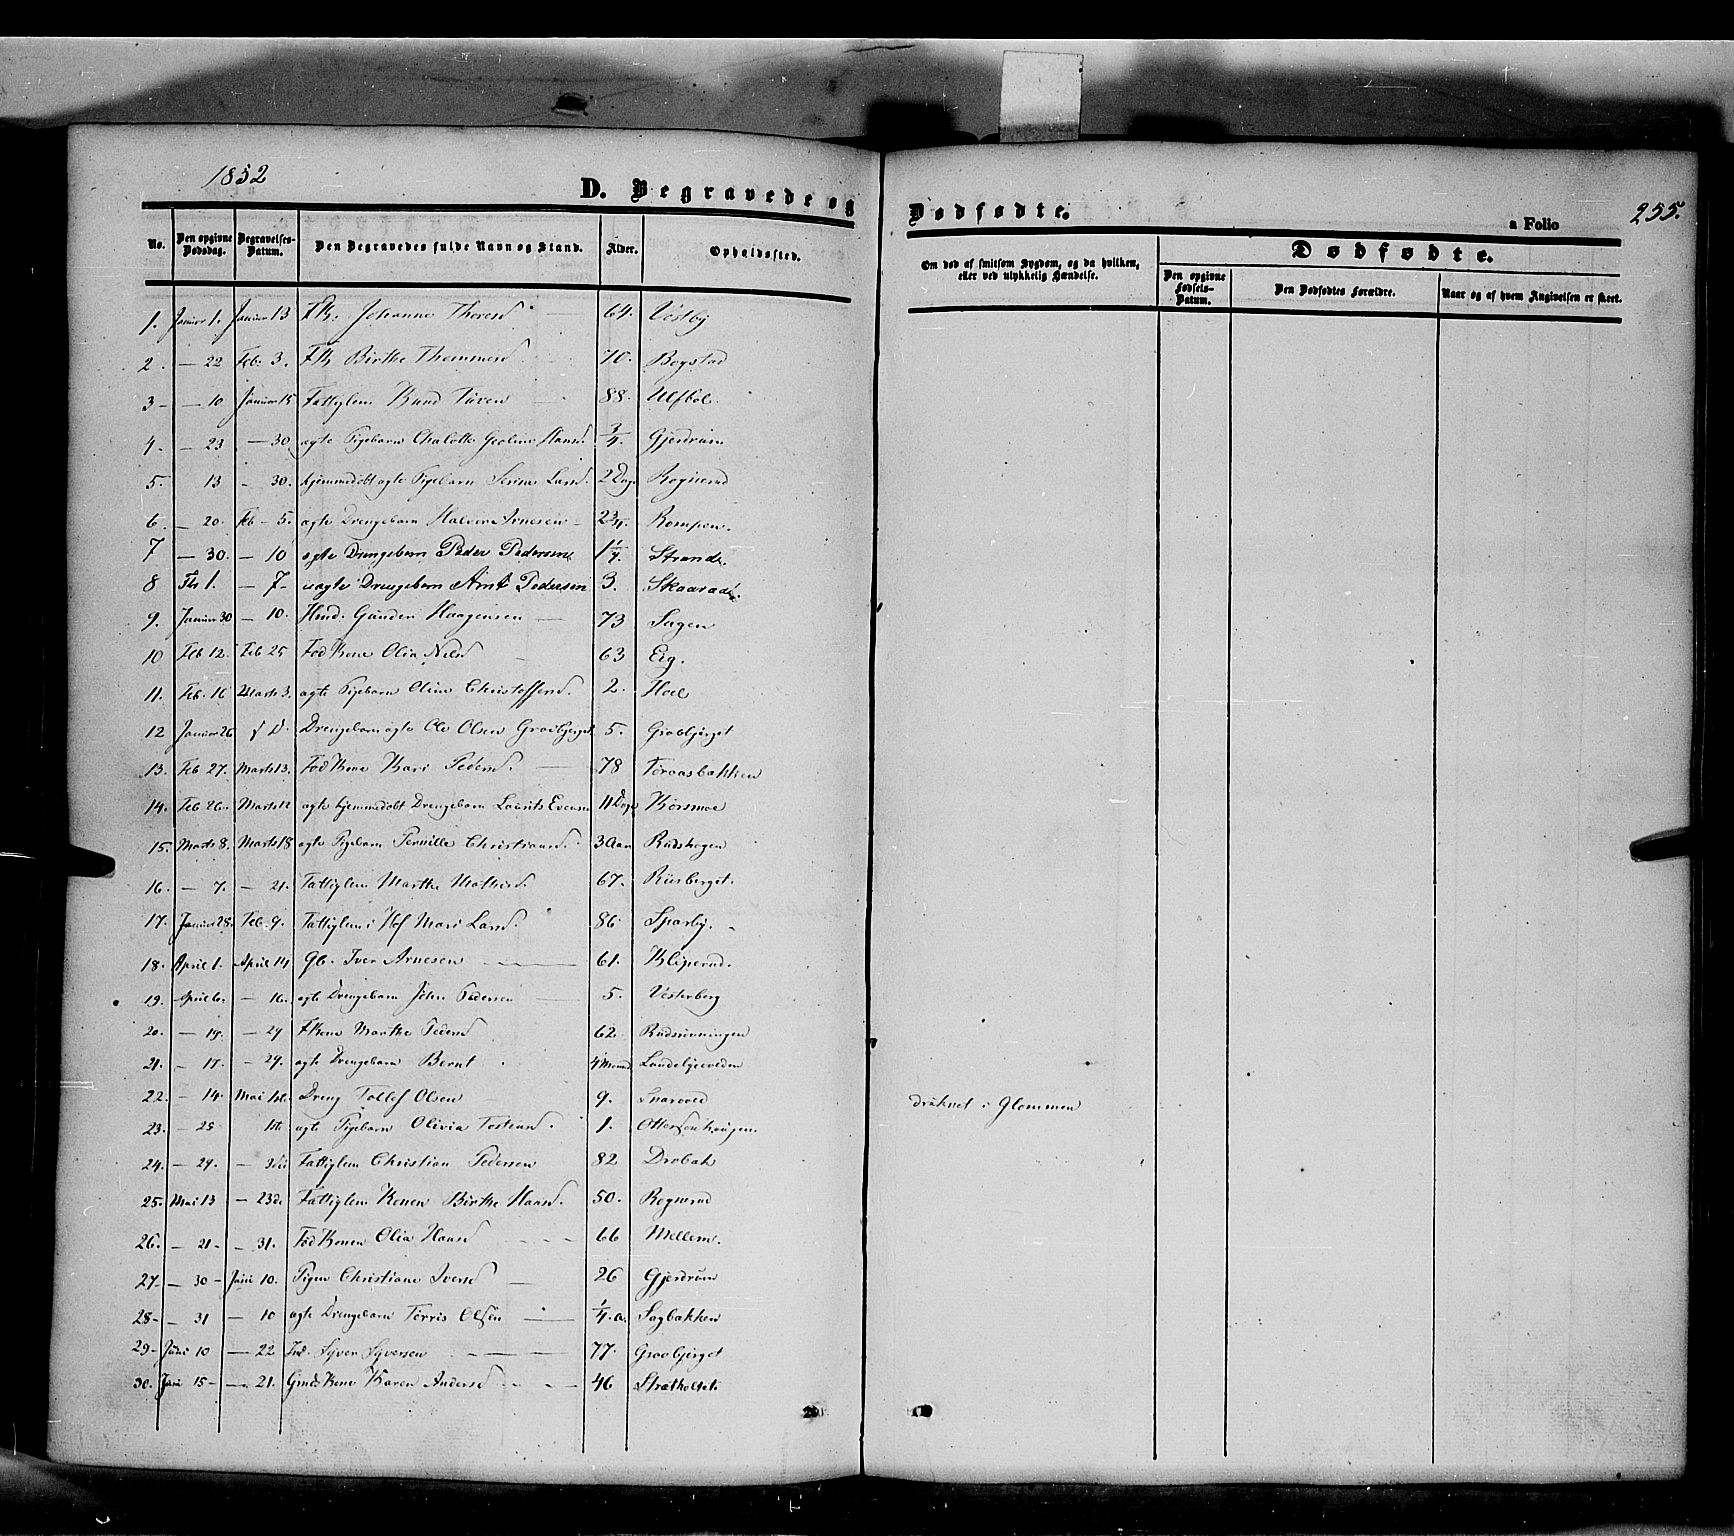 1852
D. Begravede og
Dødfødte.
a Folio
255.
No.
Den opgivne Dødsdag.
Begravelses-Datum.
Den Begravedes fulde Navn og Stand.
Alder.
Opholdssted.
Om død af smitsom Sygdom, og da hvilken, eller ved ulykkelig Hændelse.
Dødfødte.
Den opgivne Fødsels-Datum.
Den Dødfødtes Forældre.
Naar og af hvem Angivelsen er skeet.
1. Januar 1. Januar 13 Johanne Thoresd 64. Vestby
2. — 22 Feb. 3. Birthe Thommesd 70. Bogstad
3 — 10 Januar 15 Fattiglem Knud 88. Ulfbol
4. — 23 — 30. ægte Pigebarn Chalotte Geoline Hansd. 3/4. Gjerdrum
5. 13 — 30. hjemmedøbt ægte Pigebarn Serine Larsd. 2 Dage Rognerud
6. — 20. Feb — 5. ægte Drengebarn Halvor Arnesen 2 3/4. Rompen.
7 — 30. — 10 ægte Drengebarn Peder Pedersen 1 1/4. Strande.
8 Feb 1. — 7 uægte Drengebarn Arnt Pedersen 3. Skaarad
9. Januar 30 — 10. Hmd. Gunder Haagensen 73 Sagen
10 Feb 12. Feb 25 Fød Kone Olia Nilsd 63 Eig.
11. Feb. 16 Marts 3. ægte Pigebarn Oline Christoffersd. 2. Hoel
12 Januar 26 Drengebarn ægte Ole Olsen Gravbjerget 5. Gravbjerget
13. Feb 27. Marts 13. Fød Kone Kari Pedersd. 78 Foraasbakken
14. Feb 26. Marts 12 ægte hjemmedøbt Drengebarn Laurits Evensen 11 Dage Korsmoe
15. Marts 8. Marts 18 ægte Pigebarn Pernille Christiansd. 3 Aar Rudshagen
16. — 7. — 21. Fattiglem Marthe Mathisd. 67. Riisberget.
17. Januar 28. Feb. 9. Fattiglem i Hof Mari Larsd. 86 Sparby.
18. April 1. April 14 Gb. Iver Arnesen 61. Kliperud.
19. April 6. — 16. ægte Drengebarn Johan Pedersen 5. Vesterberg
20. — 19. — 29 Marthe Pedersd 62 Rudsrønningen
21. — 17. — 29. ægte Drengebarn Bernt 4 Maaned
22. — 14. Mai 1ste. Dreng Tollef Olsen 9. Snareved druknet i Glommen
23. — 25 1ste ægte Pigebarn Olivia Tostensd. 1. Ottersønhaugen.
24. — 29. — 3die Fattiglem Christian Pedersen 82 Drøbak
25. Mai 13 — 23de Fattiglem Konen Birthe Hansd. 50. Rognerud
26. — 21. — 31. Fød Konen Olia Hansd 66 Mellem.
27. — 30 — Juni 10. Pigen Christiane Iversd 26 Gjerdrum
28. — 31 — 10 ægte Drengebarn Torris Olsen 1/4. a. Sagbakken
29. Juni 10 — 22 Ind. Syver Syversen 77. Gravbjerget
30. Juni 15 — 21. Gmds Kone Karen Andersd 46 Stratholtet.